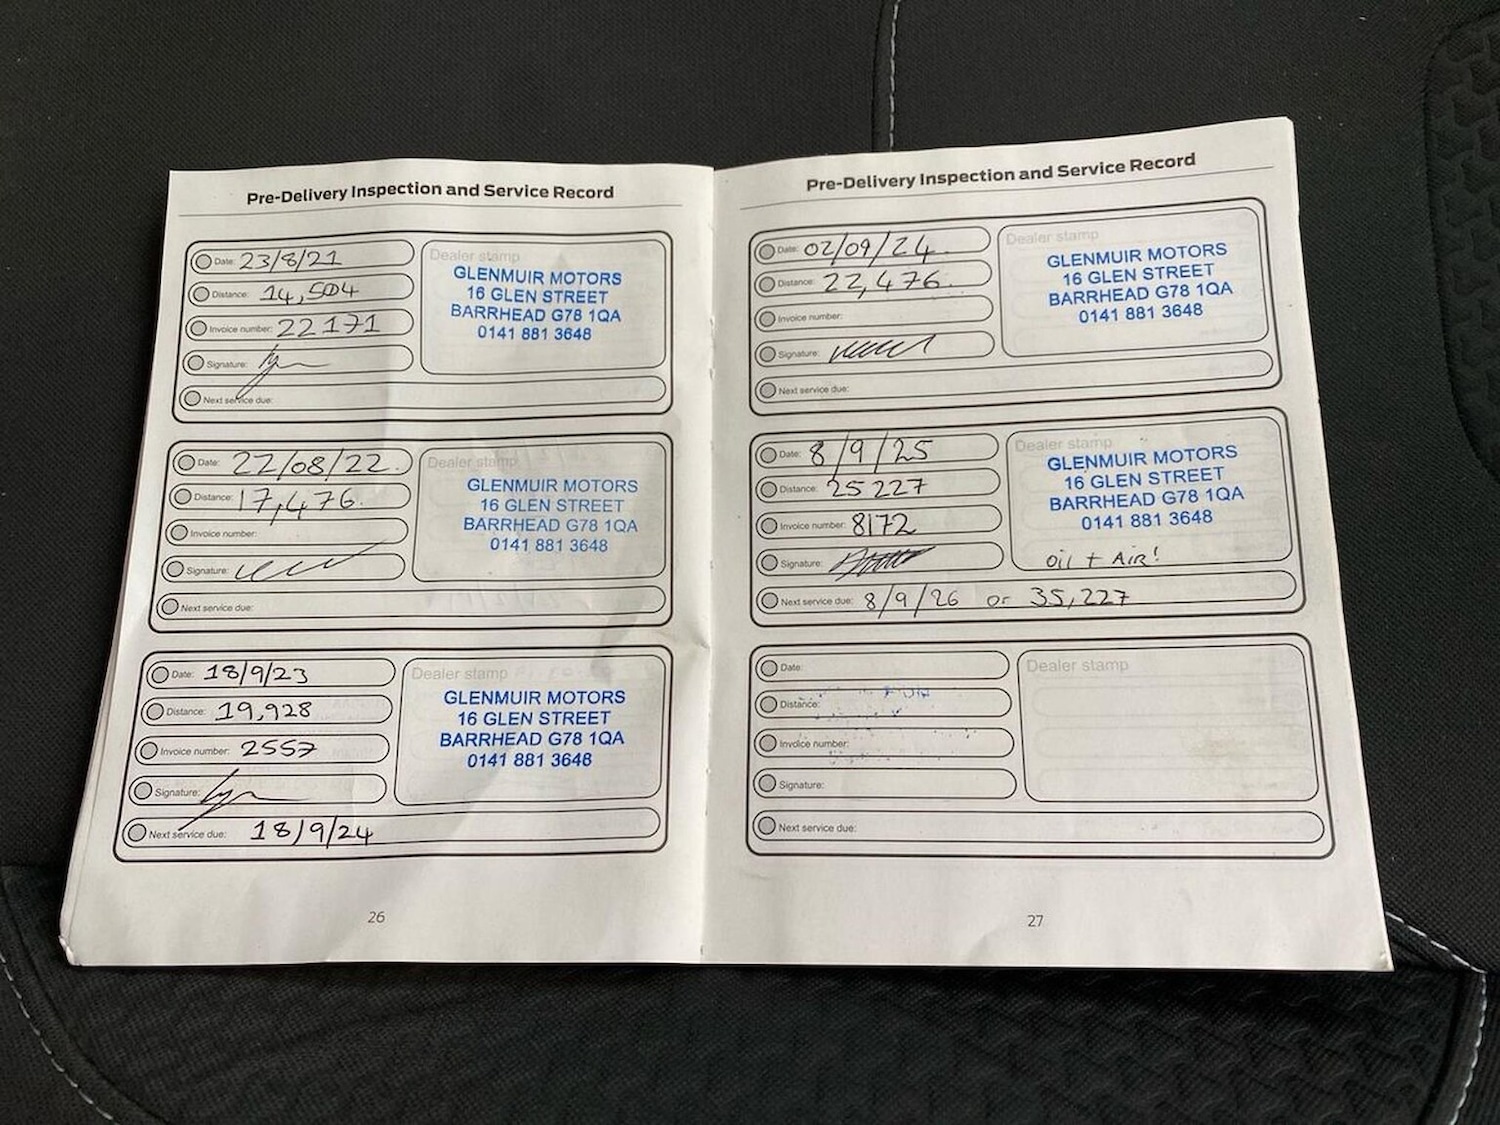 Pre-Delivery Inspection and Service Record
Date: 23/8/21
Distance: 14,504
Invoice number: 22171
Signature:
Next service due:
Dealer stamp
GLENMUIR MOTORS
16 GLEN STREET
BARRHEAD G78 1QA
0141 881 3648
Date: 22/08/22.
Distance: 17,476.
Invoice number:
Signature:
Next service due:
Dealer stamp
GLENMUIR MOTORS
16 GLEN STREET
BARRHEAD G78 1QA
0141 881 3648
Date: 18/9/23
Distance: 19,928
Invoice number: 2557
Signature:
Next service due: 18/9/24
Dealer stamp
GLENMUIR MOTORS
16 GLEN STREET
BARRHEAD G78 1QA
0141 881 3648
26
Pre-Delivery Inspection and Service Record
Date: 02/09/24.
Distance: 22,476.
Invoice number:
Signature:
Next service due:
Dealer stamp
GLENMUIR MOTORS
16 GLEN STREET
BARRHEAD G78 1QA
0141 881 3648
Date: 8/9/25
Distance: 25227
Invoice number: 8172
Signature:
Next service due: 8/9/26 or 35,227
Dealer stamp
GLENMUIR MOTORS
16 GLEN STREET
BARRHEAD G78 1QA
0141 881 3648
Oil + Air!
Date:
Distance:
Invoice number:
Signature:
Next service due:
Dealer stamp
27